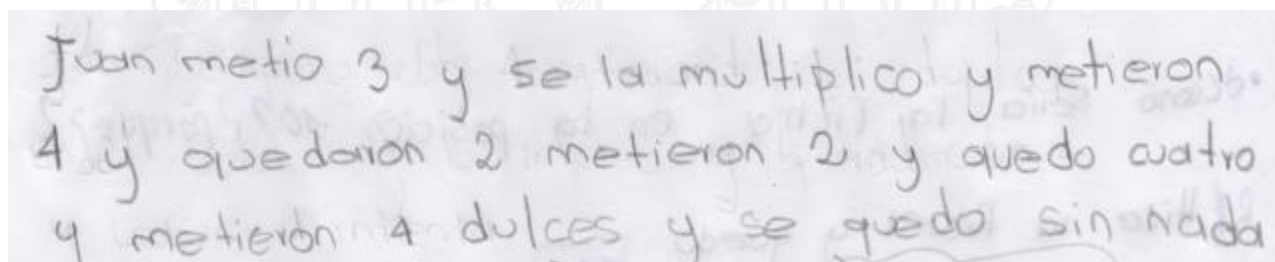 Juan metio 3 y se la multiplico y metieron
4 y quedaron 2 metieron 2 y quedo cuatro
y metieron 4 dulces y se quedo sin nada